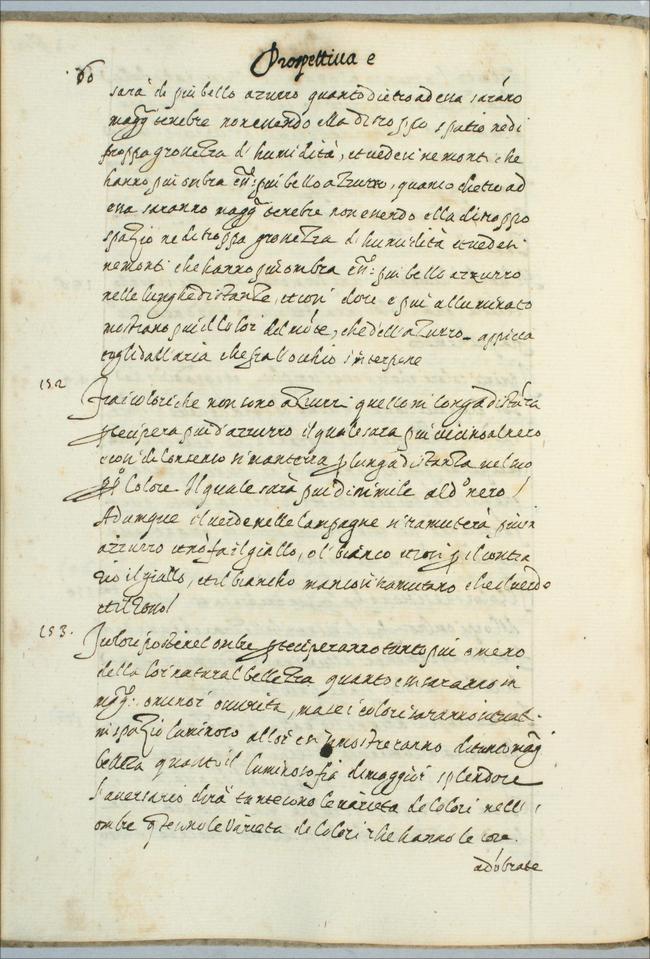 60
Prospettiua e
sarà di piu bello azurro quanto dietro ad essa sarãno
magg:ri tenebre non essendo ella di troppo spatio ne di
troppa grossezza d'humidità, et uedesi ne monti che
hanno piu ombra piu bello azzurro, quanto dietro ad
essa saranno magg:ri tenebre non essendo ella di troppo
spazio ne di troppa grossezza d'humidità et uedesi
ne monti che hanno piu ombra piu bello azzurro
nelle lunghe distanze, et cosi doue e piu alluminato
mostrano piu il Color del mõte, che dell'azurro appicca
togli dall'aria che fra l'occhio s'interpone
152
Fra i colori che non sono azurri quello in longa distãza
ptecipera piu d'azzurro il quale sara piu uicino al nero
e cosi di Conuerso si manterra p lunga distanza nel suo
pp.o Colore Il quale sarà piu dissimile al d.o nero!
Adumque il uerde nelle Campagne si tramuterà piu in
azzurro che nõ fa il giallo, o l' bianco et cosi p il contra
rio il giallo, et il biancho manco si tramutano che il uerde
et il rosso!
153.
I colori posti nel ombre pticiperanno tanto piu o meno
della lor natural bellezza quanto essi saranno in
magg:re o minor oscurita, ma se i colori saranno situati
in spazio luminoso allor essi si mostreranno di tanto magg:r
bellezza quanto il luminoso fia di maggior splendore
L'auersario dirà tante sono le uarieta de Colori nell'
ombre q.te sono le Varieta de Colori che hanno le cose
adõbrate